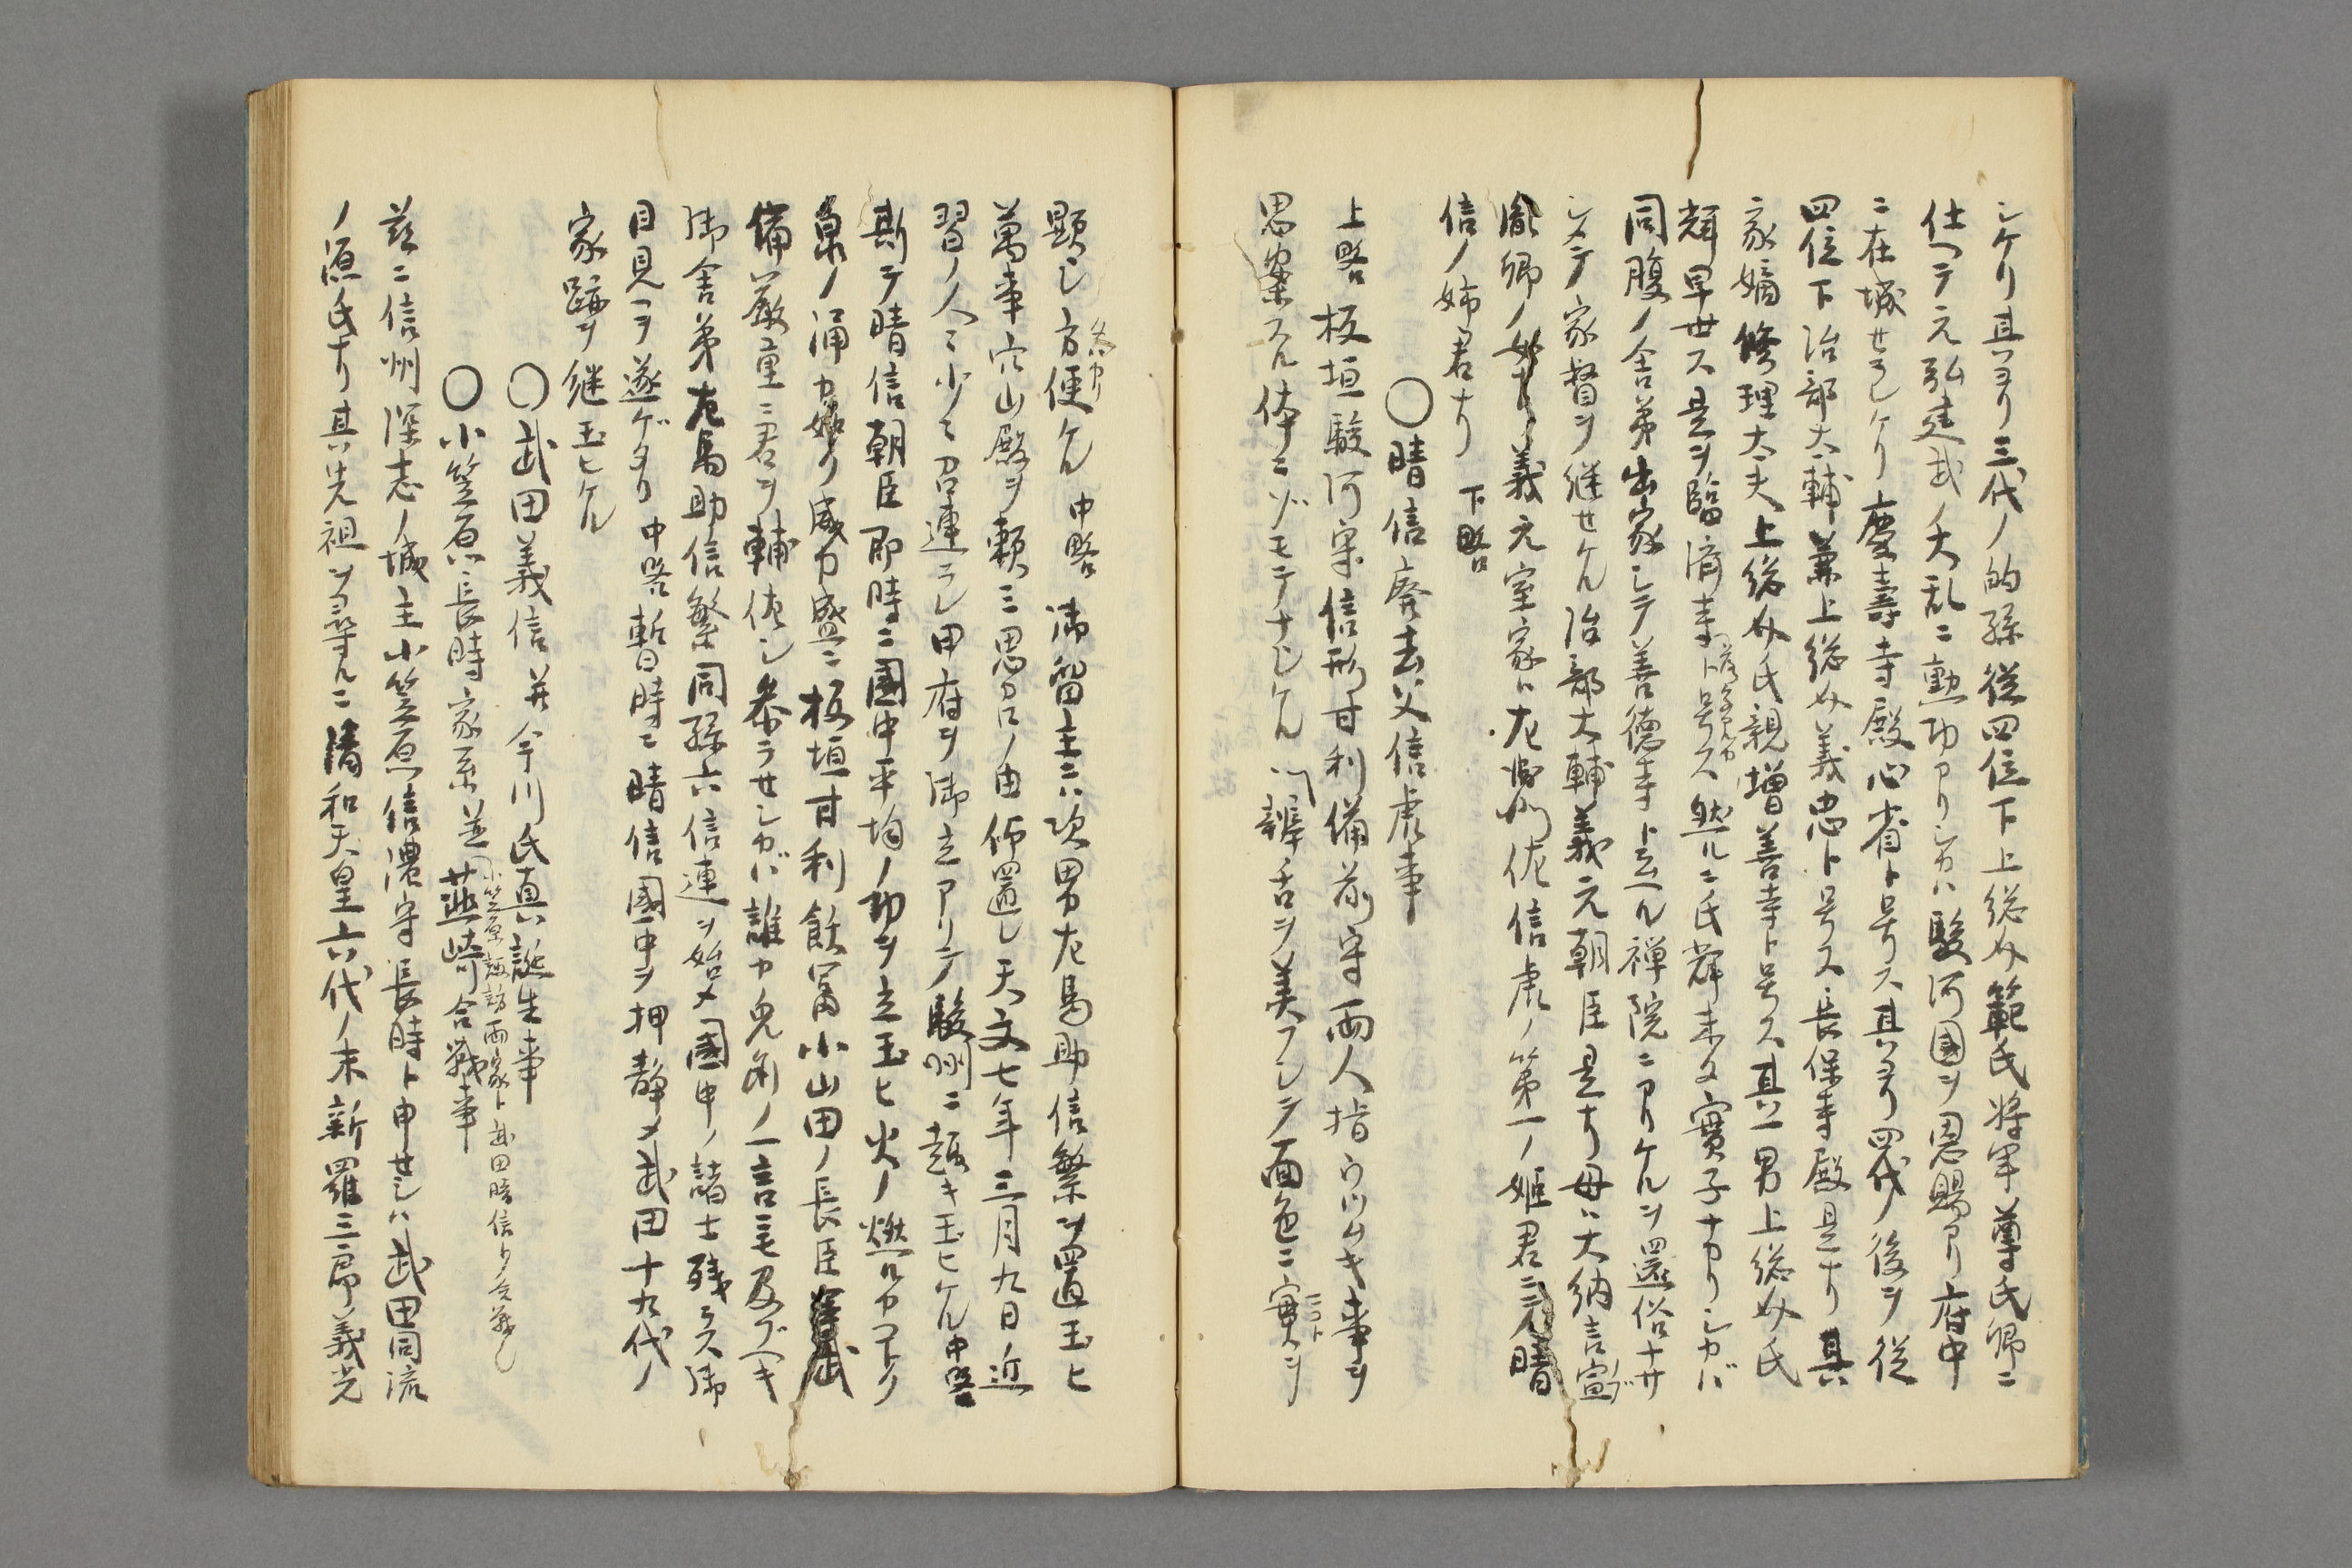 シケリ其ヨリ三代ノ的孫従四位下上総介範氏将軍尊氏卿ニ
仕ヘテ元弘建武ノ大乱ニ勲功アリシカハ駿河国ヲ恩賜アリ府中
ニ在城セラレケリ慶壽寺殿心省ト号ス其ヨリ四代ノ後ヲ従
四位下治部大輔兼上総介義忠ト号ス長保寺殿是ナリ其
家嫡修理大夫上総介氏親増善寺ト号ス其一男上総介氏
輝早世ス是ヲ臨済寺ト号ス然ルニ氏輝未タ實子ナカリシカバ
同腹ノ舎弟出家シテ善徳寺ト云ヘル禅院ニアリケルヲ還俗ナサ
シメテ家督ヲ継セケル治部大輔義元朝臣是ナリ母ハ大納言宣
胤卿ノ女ナリ義元室家ハ左京兆信虎ノ第一ノ姫君ニテ晴
信ノ姉君ナリ 下略
○晴信廃去父信虎事
上略 板垣駿河守信形甘利備前守両人指ウツムキ事ヲ
思案スル体ニゾモテナシケル 辯舌ヲ美フシテ面色ニ實ヲ
顕シ方便ケル 中略 御留主ニハ次男左馬助信繁ヲ置玉ヒ
萬事穴山殿ヲ頼ミ思召ノ由仰置レ天文七年三月九日近
習ノ人々少々召連ラレ甲府ヲ御立アリテ駿州ニ趣キ玉ヒケル 中略
斯テ晴信朝臣即時ニ國中平均ノ功ヲ立玉ヒ火ノ燃ルカコトク
泉ノ涌カ如ク威力盛ニ板垣甘利飫冨小山田ノ長臣
備厳重ニ君ヲ輔佐シ参ラセシカバ誰カ兎角ノ一言ニモ及ブヘキ
御舎弟左馬助信繁同孫六信連ヲ始メ國中ノ諸士残ラス御
目見ヲ遂ゲタリ 中略 暫時ニ晴信國中ヲ押静メ武田十九代ノ
家跡ヲ継玉ヒケル
○武田義信并今川氏真誕生事
○小笠原長時家系並韮崎合戦事
小笠原諏訪両家ト武田晴信ク合戦シ
茲ニ信州深志ノ城主小笠原信濃守長時ト申セシハ武田同流
ノ源氏ナリ其先祖ヲ尋ルニ清和天皇六代ノ末新羅三郎義光